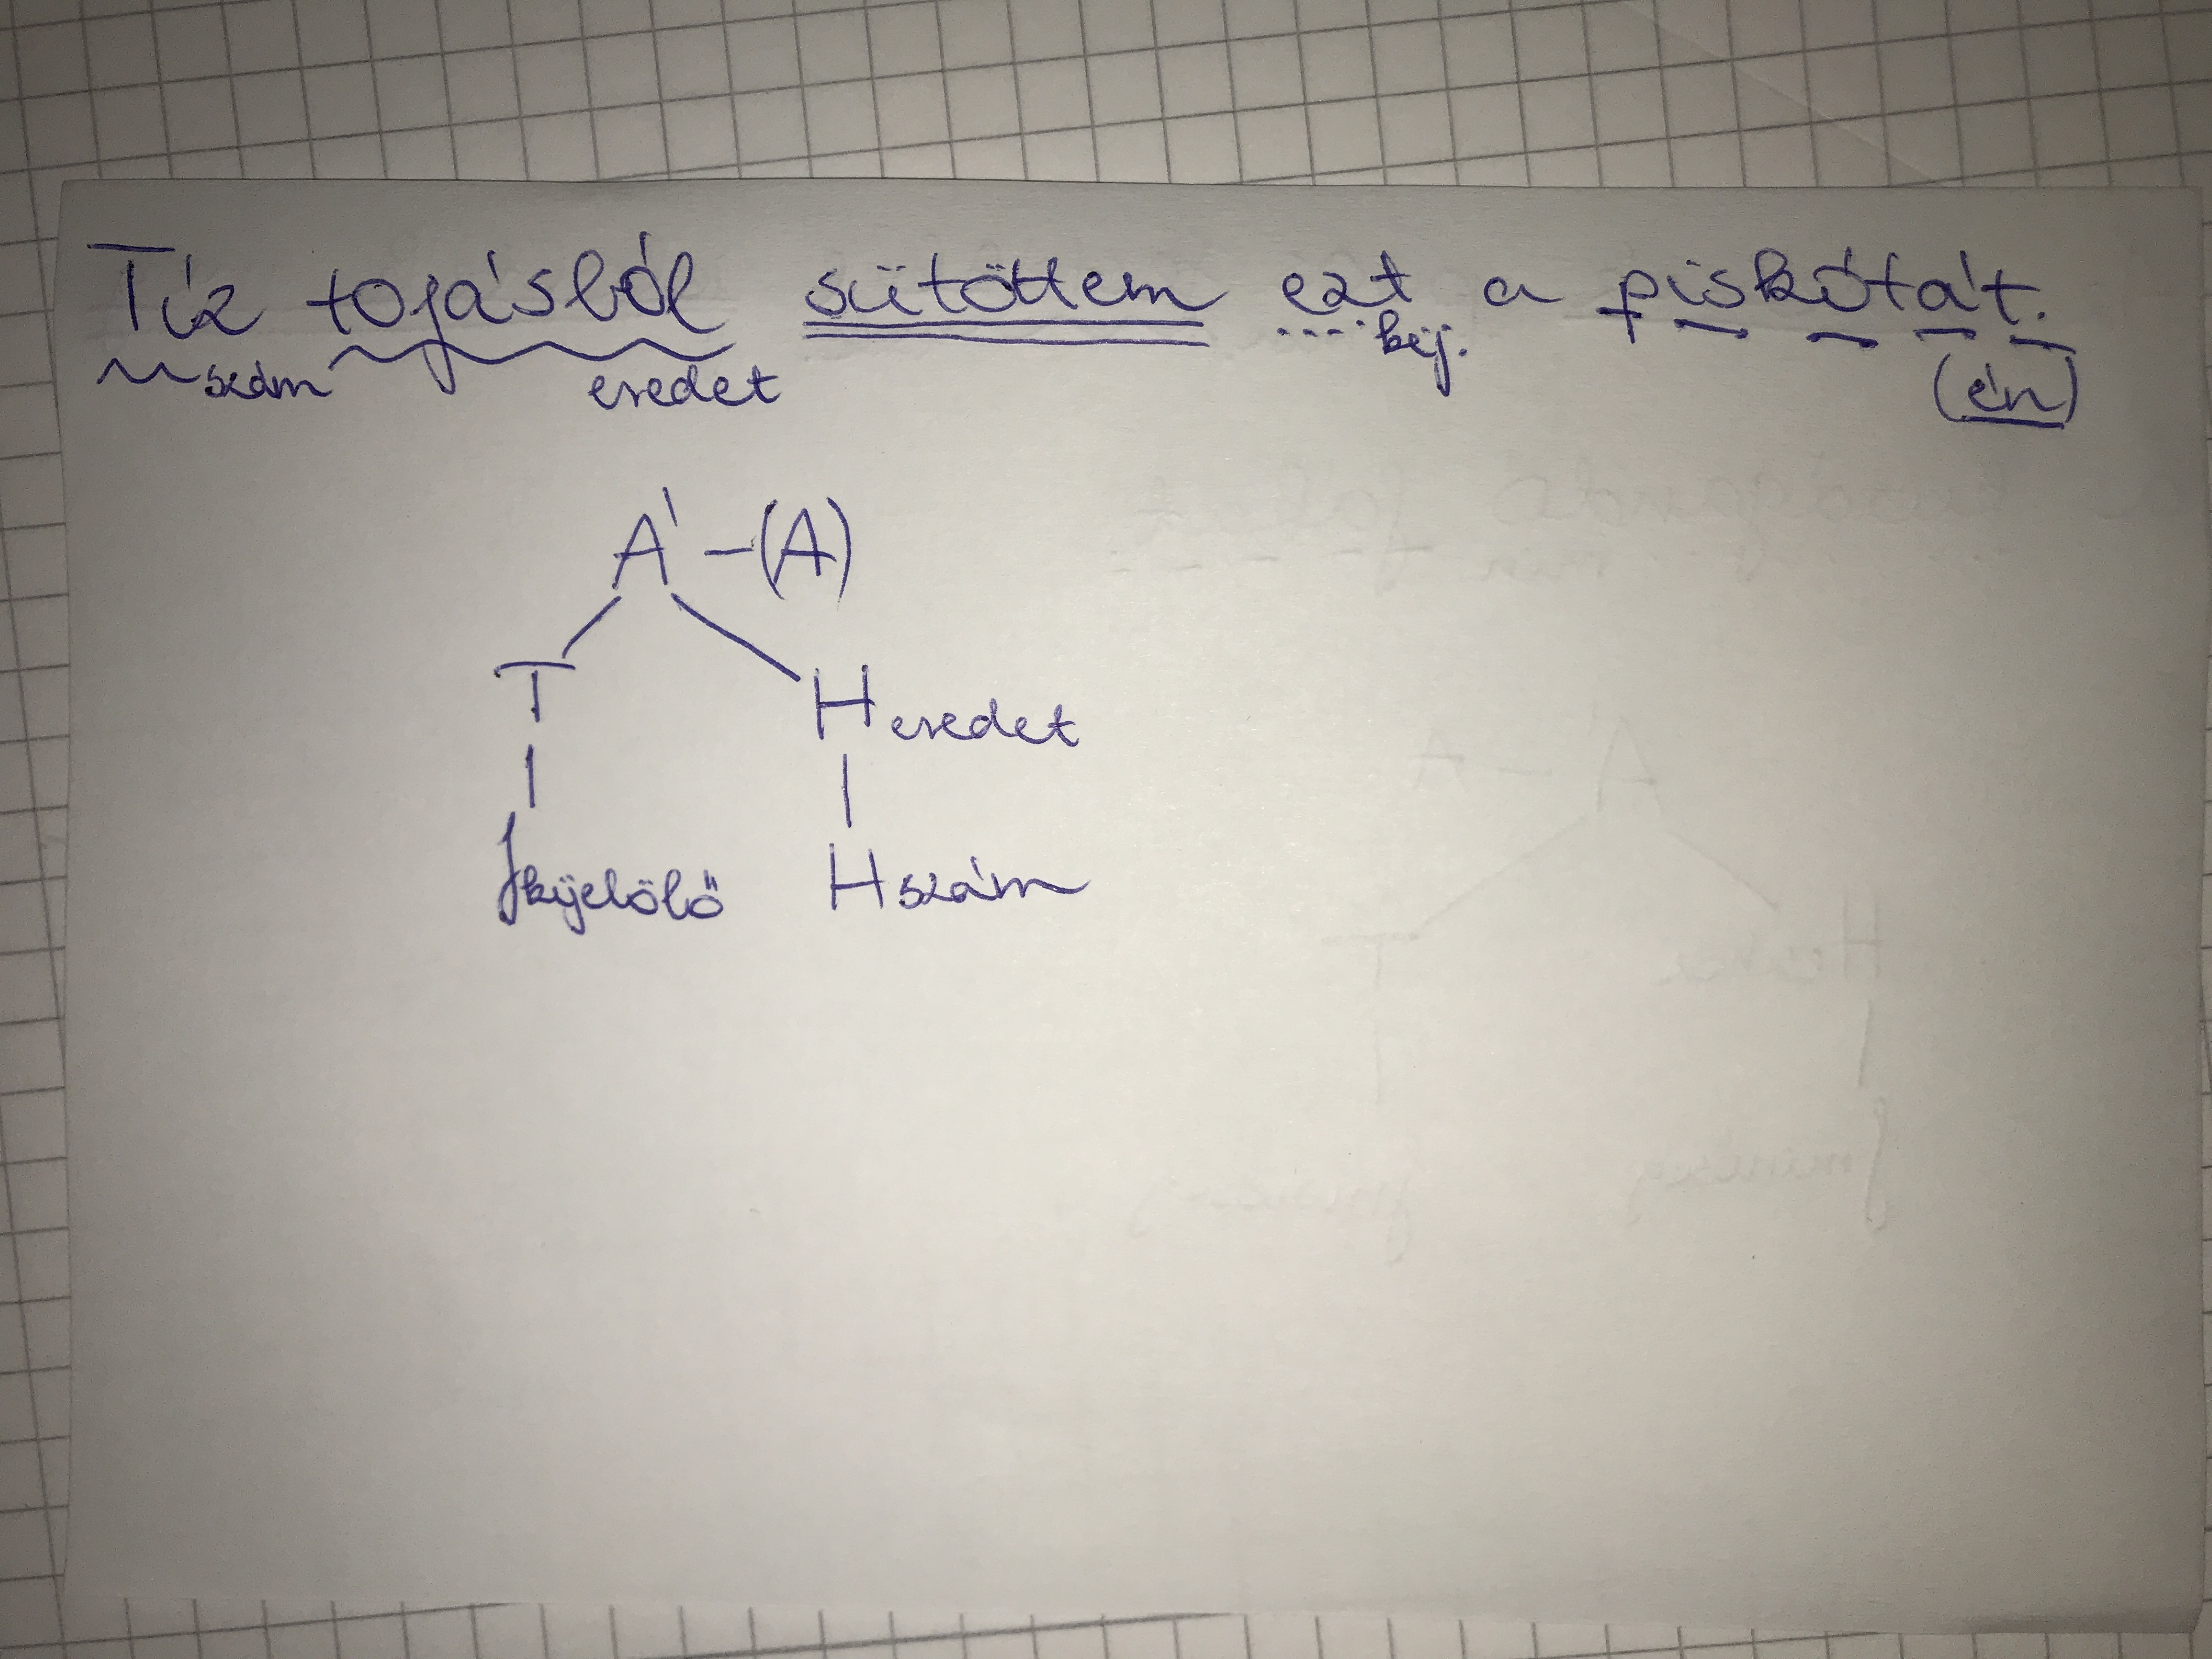 Tíz tojásból sütöttem ezt a piskótát.
szám eredet kij. (én)
Á - (A)
T H eredet
J kijelölő H szám